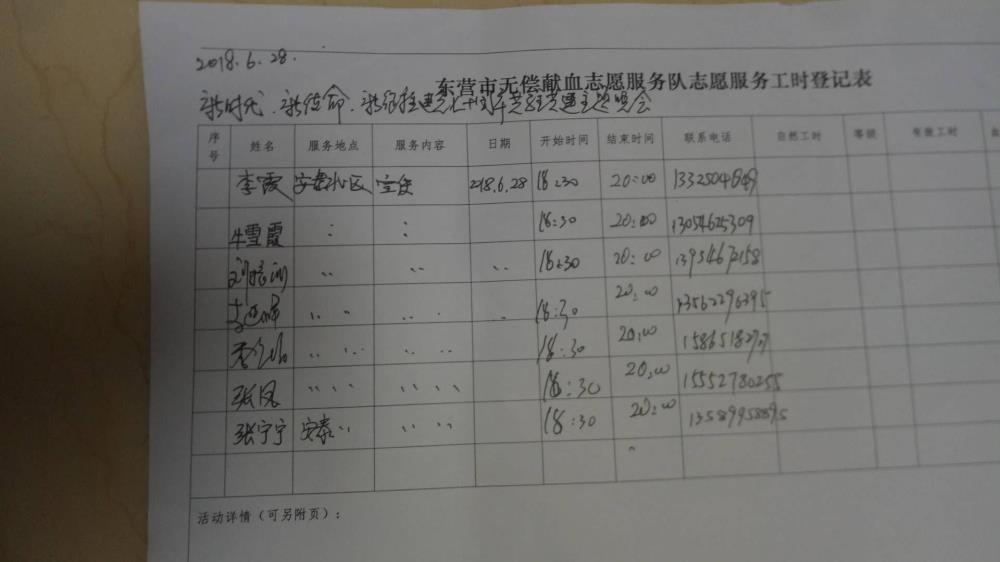 2018.6.28.
东营市无偿献血志愿服务队志愿服务工时登记表
新时代.新使命.新征程 主题晚会
序号 姓名 服务地点 服务内容 日期 开始时间 结束时间 联系电话 自然工时 等级 有效工时
李霞 安泰小区 宣传 2018.6.28 18:30 20:00
牛雪霞 : : 18:30 20:00 13054625309
刘 ·· ·· ·· 18:30 20:00 13954672158
李 ·· · ·· · ·· 18:30 20:00 13562296395
·· ·· ·· ·· 18:30 20:00
张凤 ·· ·· ·· ·· 18:30 20:00 15552780255
张宁宁 安泰 ·· ·· ·· 18:30 20:00 13589958895
活动详情（可另附页）：